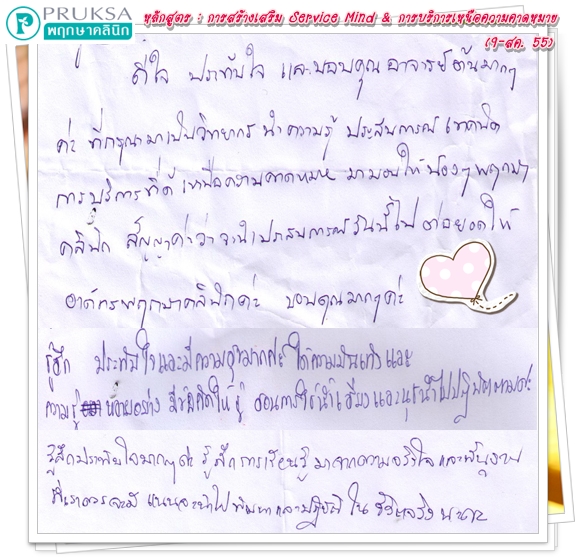 PRUKSA
พฤกษาคลินิก
หลักสูตร : การสร้างเสริม Service Mind & การบริการเหนือความคาดหมาย
(9-สค. 55)
ดีใจ ประทับใจ และขอบคุณอาจารย์ต้นมากๆ
ค่ะ ที่กรุณามาเป็นวิทยากร นำความรู้ ประสบการณ์ เทคนิค
การบริการที่ดี เหนือความคาดหมาย มามอบให้น้องๆ พฤกษา
คลินิก สัญญาค่ะว่าจะนำประสบการณ์วันนี้ไป ต่อยอดให้
องค์กรพฤกษาคลินิกค่ะ ขอบคุณมากๆค่ะ
รู้สึก ประทับใจและมีความสุขมากค่ะ ได้ความบันเทิงและ
ความรู้ หลายอย่าง มีข้อคิดให้รู้ สอนการใช้น้ำเสียงและ นำไปปฏิบัติตามค่ะ
รู้สึกประทับใจมากๆค่ะ รู้สึกการเรียนรู้ มาจากความจริงใจ และ
ที่เราควรจะมี แน่นอนจะนำไป พัฒนา และปฏิบัติ ใน ชีวิตจริง นะคะ